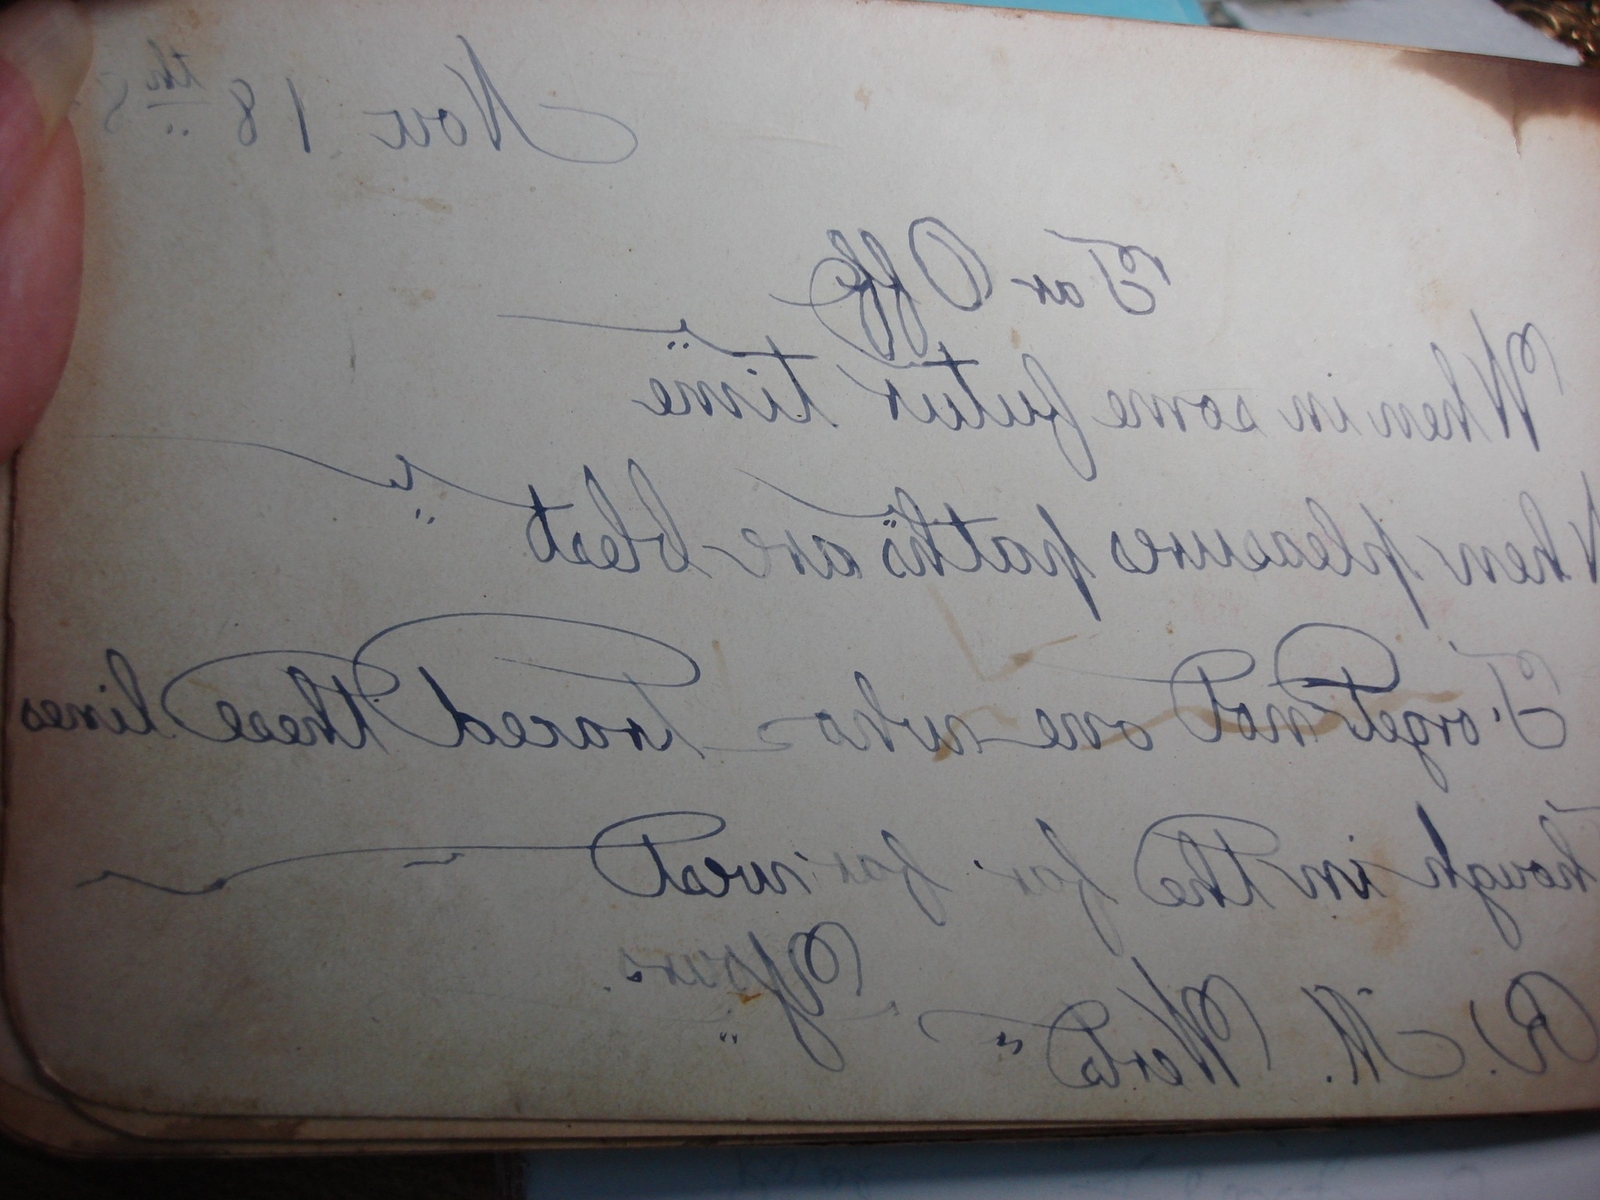 Nov 18th 8
Far Off
When in some futur time
When pleasures paths are blest
Forget not one who traced these lines
Though in the far far west
Yours.
R. M. Werts